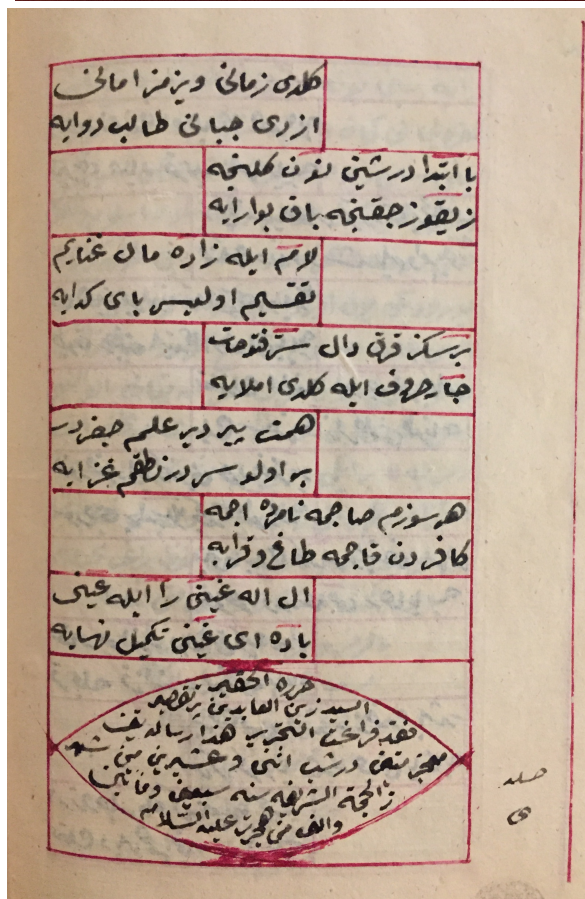 كلدى زمانى ويزمز امانى
ازدى جبانى طالب دوايه
با ابتدا در شين نون كلنجه
زيقوز جقنجه باق بوارايه
لام ايله زاده مال غنايم
تقسيم اوليسر باى كدايه
برسكز قرق دال ستر فتوحات
جار حروف ايله كلدى املايه
همت پير دير علمم جفردر
بر اولو سردر نطقم غزايه
هر سوزم صاجمه نامرده اجمه
كافردن قاجمه طاغ وقرايه
ال اله غينى را ايله عينى
ياره اى غينى تكميل نهايه
حرره الحقير
السيد زين العابدين
فقد فراغت التحرير هذا رساله
اثنى وعشرين من
ذالحجة الشريفه سنه سبعين
والف من هجرت عليه السلام